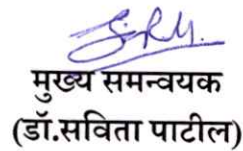 मुख्य समन्वयक
(डॉ.सविता पाटील)